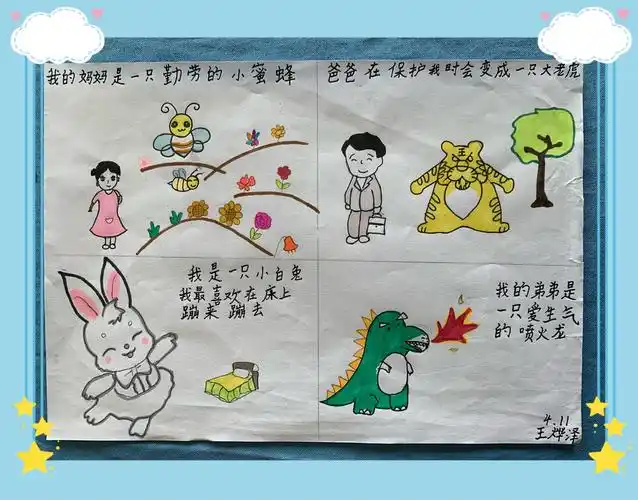 我的妈妈是一只勤劳的小蜜蜂
爸爸在保护我时会变成一只大老虎
我是一只小白兔
我最喜欢在床上
蹦来蹦去
我的弟弟是
一只爱生气
的喷火龙
4.11
王烨泽